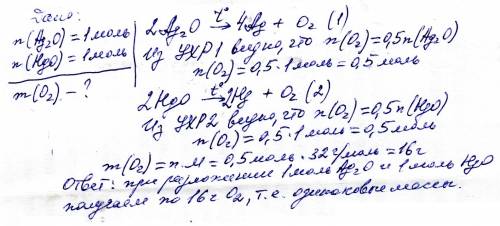 Дано:
n(Ag₂O) = 1 моль
n(HgO) = 1 моль
m(O₂) - ?
2Ag₂O t°→ 4Ag + O₂ (1)
Из УХР1 видно, что n(O₂) = 0,5n(Ag₂O)
n(O₂) = 0,5 · 1 моль = 0,5 моль
2HgO t°→ 2Hg + O₂ (2)
Из УХР2 видно, что n(O₂) = 0,5n(HgO)
n(O₂) = 0,5 · 1 моль = 0,5 моль
m(O₂) = n · M = 0,5 моль · 32 г/моль = 16 г
Ответ: при разложении 1 моль Ag₂O и 1 моль HgO
получаем по 16 г O₂, т.е. одинаковые массы.